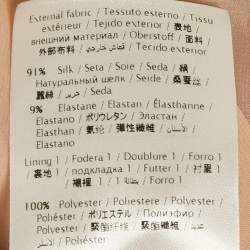 External fabric / Tessuto esterno / Tissu
extérieur / Tejido exterior / 表地 /
внешний материал / Oberstoff / 面料 /
外部布料 / قماش خارجي / Tecido exterior
91% Silk / Seta / Soie / Seda / 絹 /
Натуральный шелк / Seide / 桑蚕丝 /
蠶絲 / حرير / Seda
9% Elastane / Elastan / Élasthanne /
Elastano / ポリウレタン / Эластан /
Elasthan / 氨纶 / 彈性纖維 / الأستان /
Elastano
Lining 1 / Fodera 1 / Doublure 1 / Forro 1
/ 裏地 1 / подкладка 1 / Futter 1 / 衬里 1
/ 襯裡 1 / بطانة 1 / Forro 1
100% Polyester / Poliestere / Polyester /
Poliéster / ポリエステル / Полиэфир /
Polyester / 聚酯纤维 / 聚酯纖維 /
Poliéster